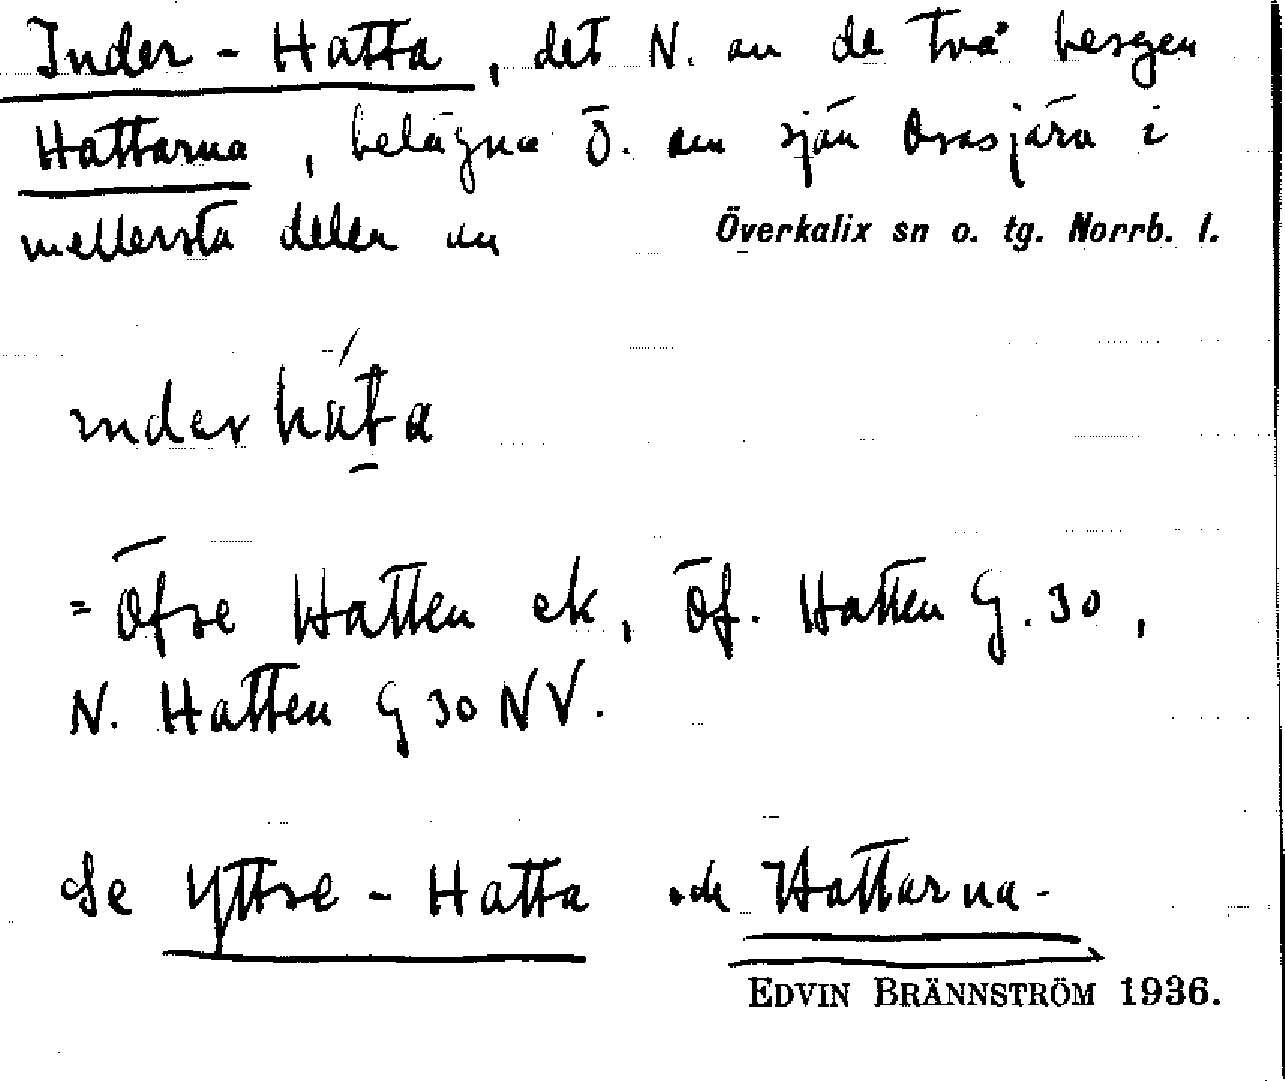 Inder-Hatta, det N. av de två bergen
Hattarna, belägna ö. om sjön Orasjärv i
mellersta delen av Överkalix sn o. tg. Norrb. l.
ındər hát̯a
= Öfre Hatten ek, Öf. Hatten G. 30,
N. Hatten G 30 NV.
Se Yttre-Hatta och Hattarna.
EDVIN BRÄNNSTRÖM 1936.